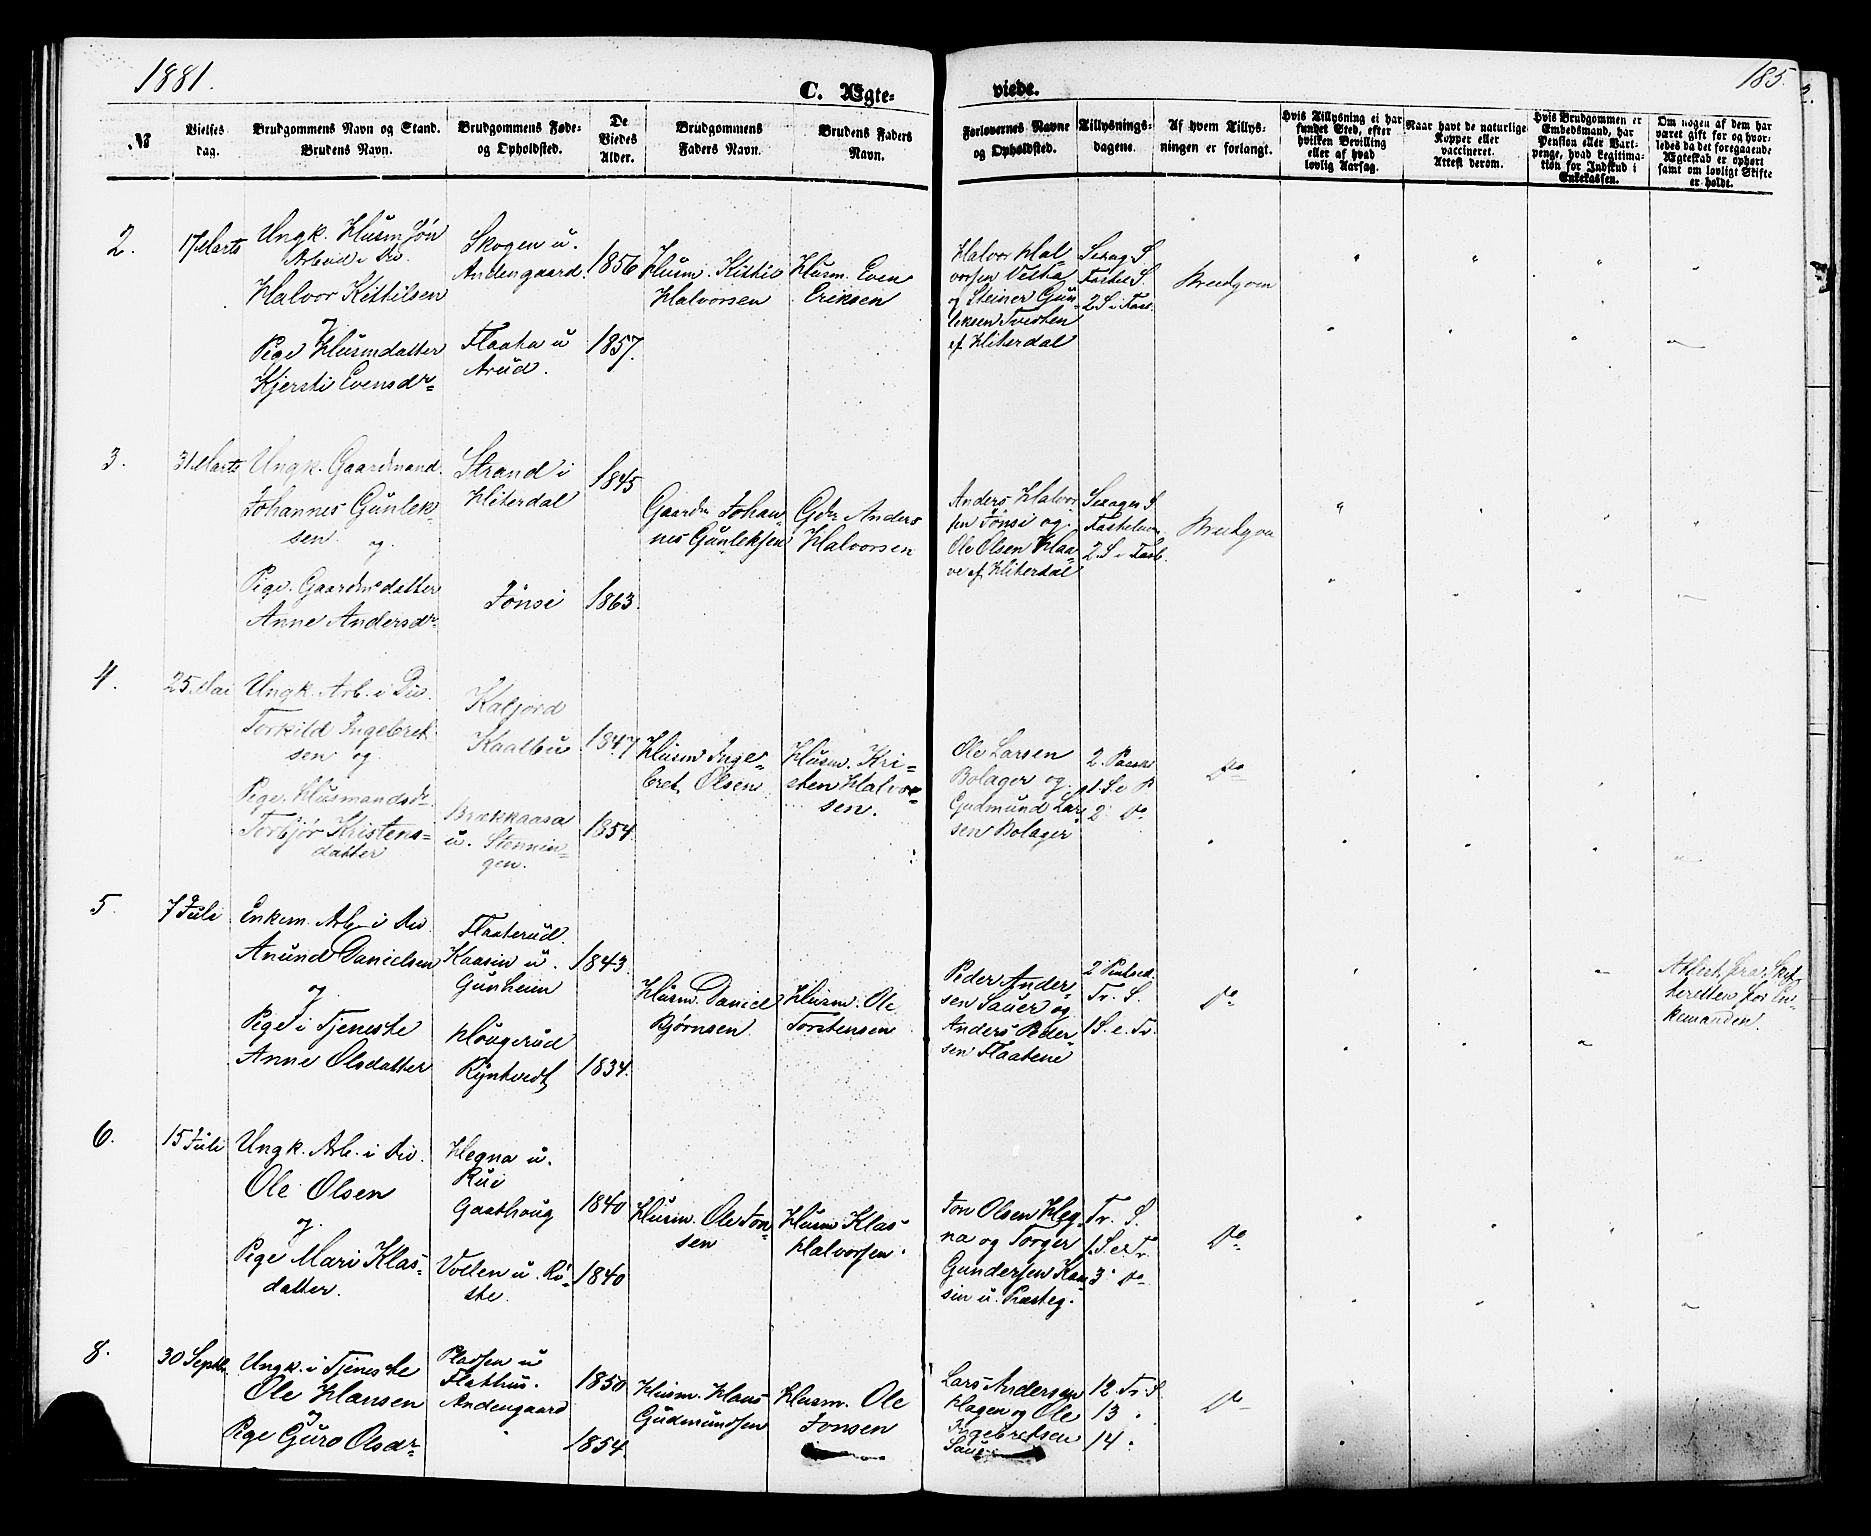 1881.
C. Ægte-
viede.
185.
№
Vielses dag.
Brudgommens Navn og Stand. Brudens Navn.
Brudgommens Føde- og Opholdsted.
De Viedes Alder.
Brudgommens Faders Navn.
Brudens Faders Navn.
Forlovernes Navne og Opholdsted.
Tillysnings- dagene.
Af hvem Tillys- ningen er forlangt.
Hvis Tillysning ei har fundet Sted, efter hvilken Bevilling eller af hvad lovlig Aarsag.
Naar havt de naturlige Kopper eller vaccineret. Attest derom.
Hvis Brudgommen er Embedsmand, har Pension eller Vart- penge, hvad Legitima- tion for Indskud i Enkekassen.
Om nogen af dem har været gift før og hvor- ledes da det foregaaende Ægteskab er ophørt samt om lovligt Skifte er holdt.
2.
17 Marts
Ungk. Husm Søn
Arbeid i Div.
Halvor Kittilsen
og
Pige Husmdatter
Kjersti Evensdr
Skogen u.
Andengaard
Flaata u
Arud.
1856
1857.
Husm. Kittil
Halvorsen
Husm. Even
Eriksen
Halvor Hal-
vorsen Vesha
og Steiner Gun-
leksen Tveiten
af Hiterdal
Sexag S.
Fastel S.
2 S i Fast.
Brudgom
3.
31 Marts
Ungk. Gaardmand
Johannes Gunlek-
sen. og
Pige. Gaardmsdatter
Anne Andersdr
Strand i
Hiterdal
Jønsi
1845
1863.
Gaardm Johan-
nes Gunleksen
Gdm Anders
Halvorsen
Anders Halvor-
sen Jønsi og
Ole Olsen Haa-
ve af Hiterdal
Sexages S.
Fastelavn
2. S i Fast.
Brudgom
4.
25 Mai
Ungk. Arb. i Div.
Torkild Ingebret-
sen og
Pige. Husmandsdr
Torbjør Kristens-
datter
Kaljord
Kaalbu
Brækkaasa
u. Stennin-
gen.
1847
1854.
Husm Inge-
bret Olsen
Husm. Kri-
sten Halvor-
sen.
Ole Larsen
Bolager og
Gudmund Lar-
sen Bolager
2. Paaske
1. S. e P
2. Do
Do
5.
7 Juli
Enkem. Arb i Div
Anund Danielsen
og
Pige i Tjeneste
Anne Olsdatter
Flaaterud.
Kaasin u.
Gunheim
Hougerud
Ryntvedt
1843.
1834.
Husm. Daniel
Bjørnsen
Husm. Ole
Torstensen
Peder Ander-
sen Sauer og
Anders Peder-
sen Flaatene
2 Pintsed.
Tr. S.
1 S. e. Tr.
Do
Attest fra Skif-
teretten for En-
kemanden.
6.
15 Juli
Ungk. Arb. i Div.
Ole Olsen
og
Pige Mari Klas-
datter.
Hegna u.
Rui
Gaashoug
Vollen u. Rø-
ste.
1840
1840
Husm. Ole Jon-
sen
Husm Klas
Halvorsen.
Jon Olsen Heg-
na og Torger
Gundersen Kaa-
sin u. Præsteg.
Tr. S.
1. S. e Tr.
3. Do
Do
8.
30 Septbr.
Ungk. i Tjeneste
Ole Hansen
og
Pige Guro Olsdr
Pladsen u
Flathus.
Andengaard
1850
1854.
Husm. Hans
Gudmundsen
Husm. Ole
Jonsen
Lars Andersen
Hagen og Ole
Ingebretsen
Sauer
12. Tr. S.
13 "
14 "
Do